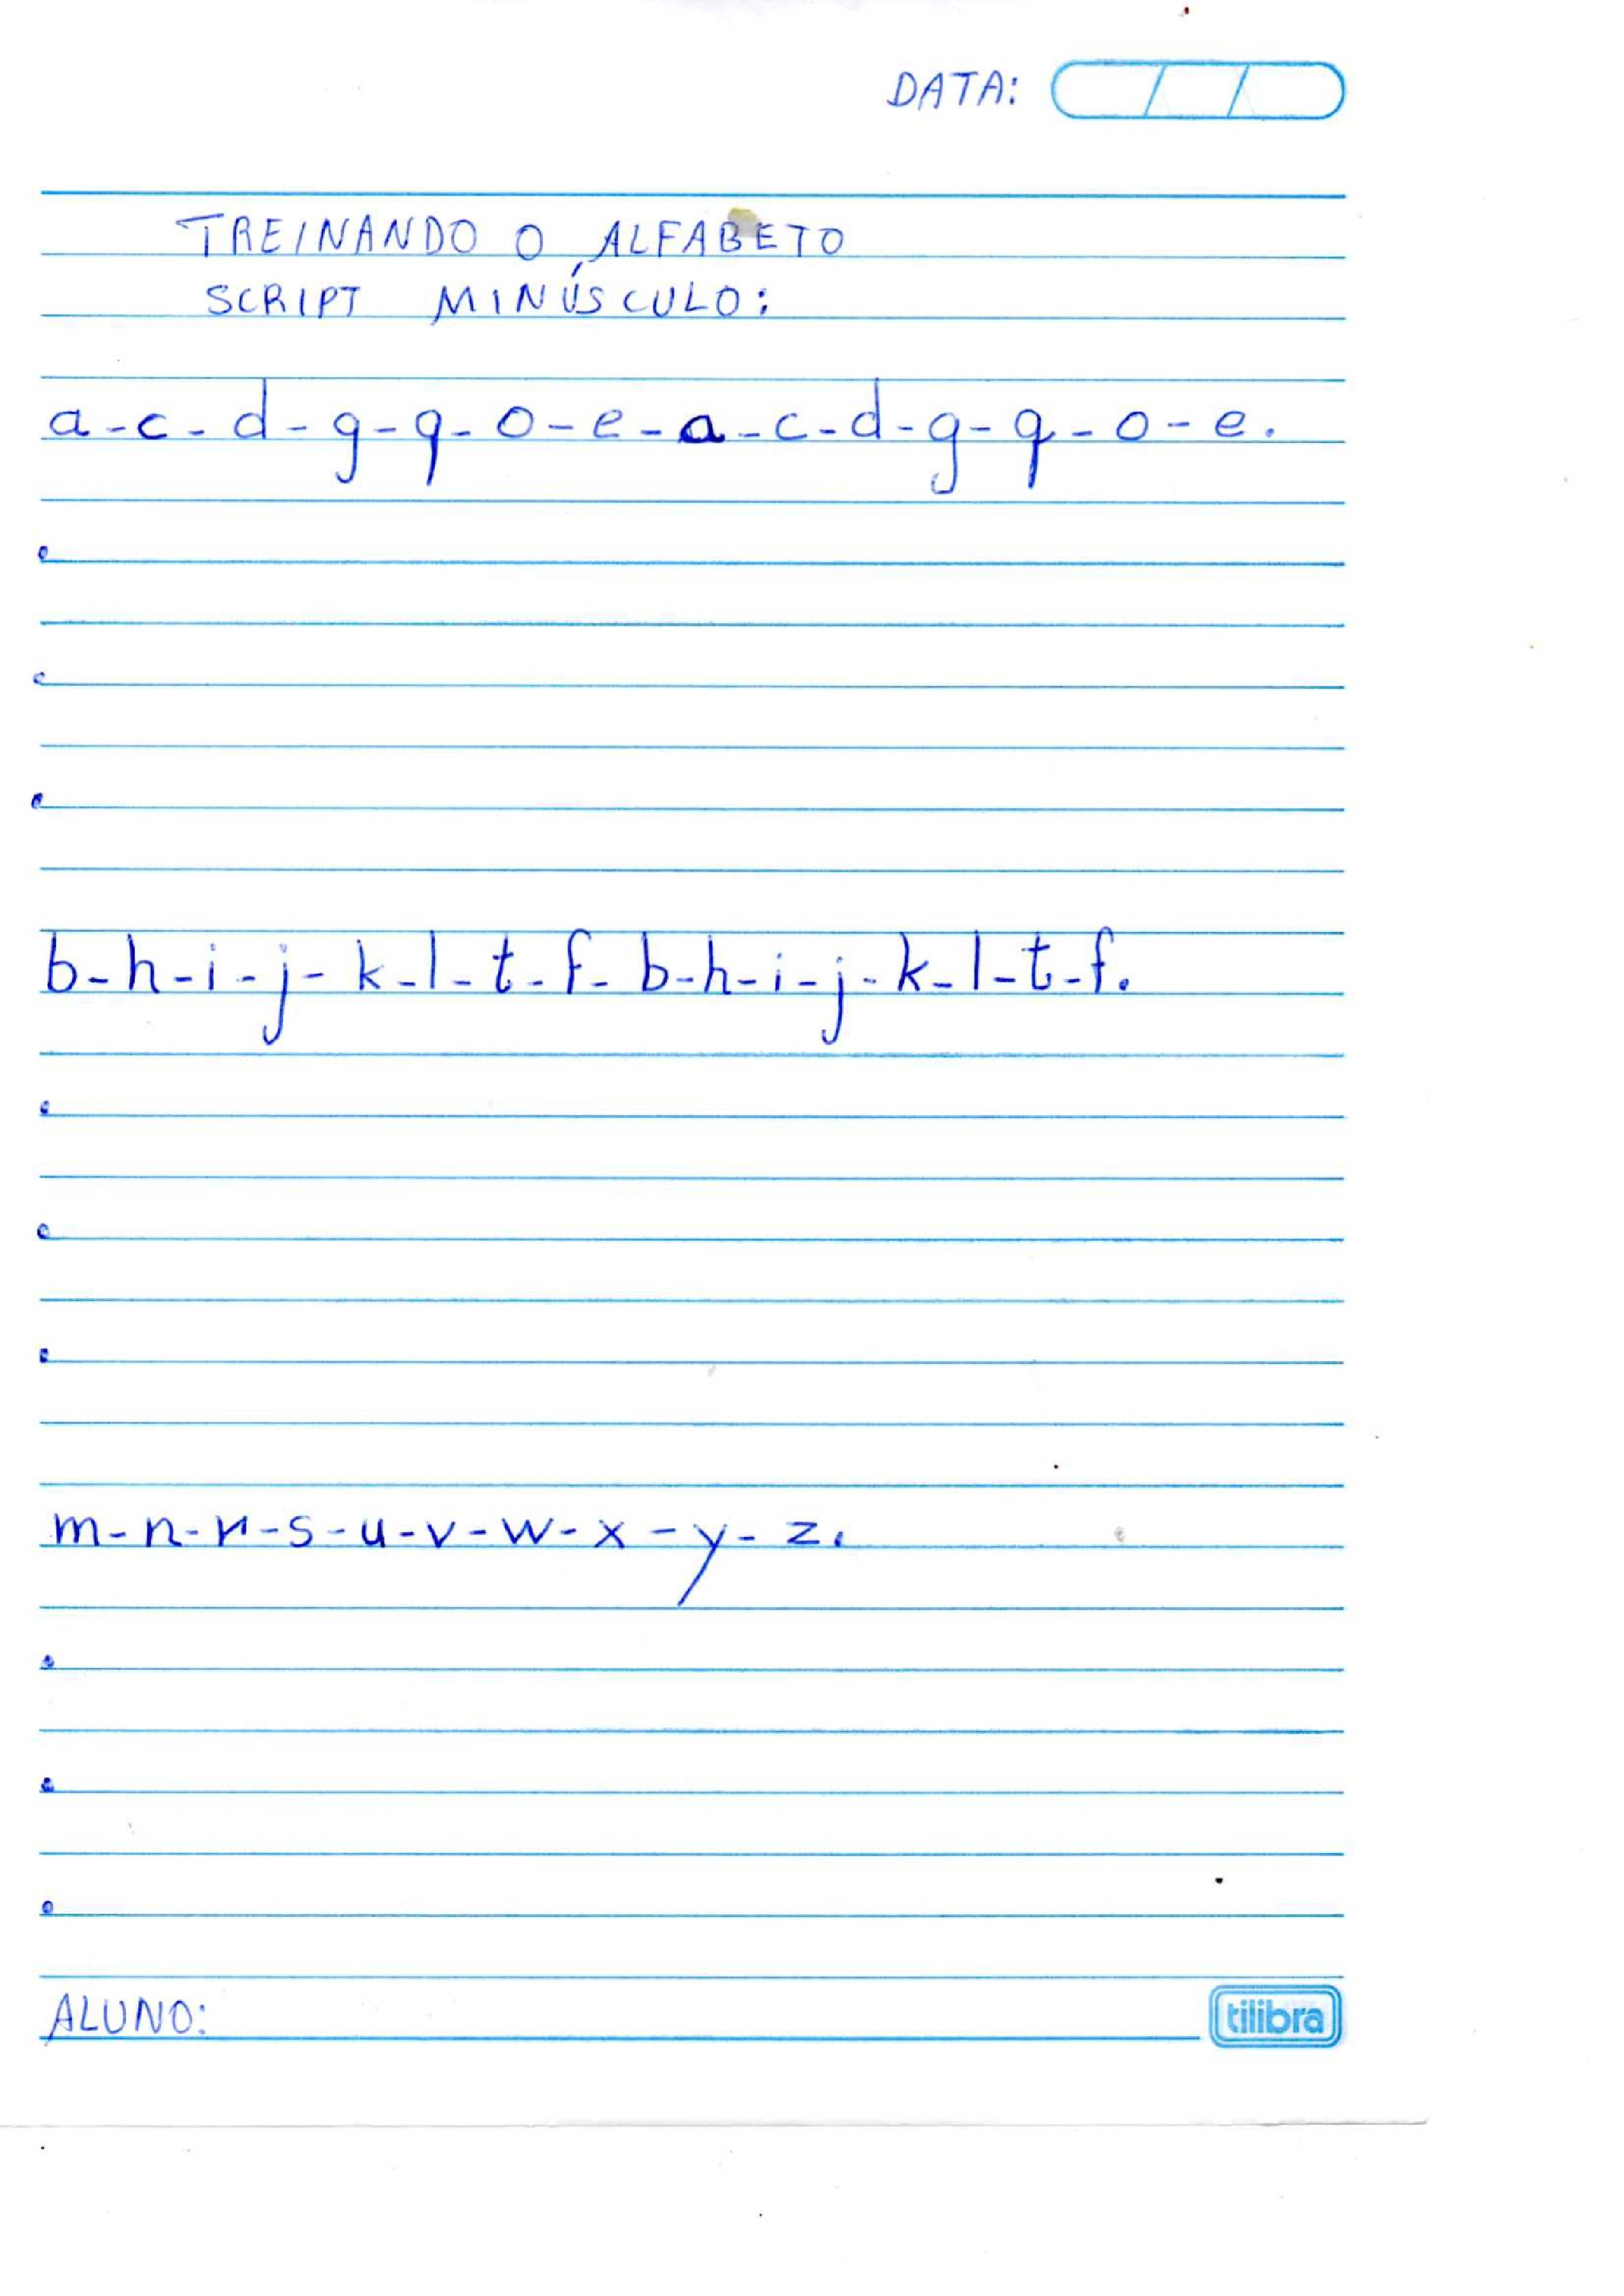 DATA: / /
TREINANDO O ALFABETO
SCRIPT MINÚSCULO:
a-c-d-g-q-o-e-a-c-d-g-q-o-e.
b-h-i-j-k-l-t-f-b-h-i-j-k-l-t-f.
m-n-r-s-u-v-w-x-y-z.
ALUNO:
tilibra